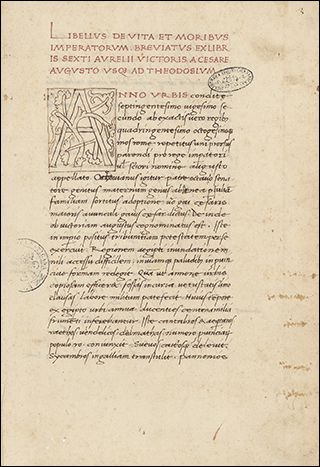 LIBELLUS DE VITA ET MORIBUS
IMPERATORUM BREVIATUS EX LIBR
IS SEXTI AURELII VICTORIS A CESARE
AUGUSTO USQ AD THEODOSIUM
ANNO URBIS condite
septingentesimo uigesimo se
cundo ab exactis uero regib
quadringentesimo octogesimo
mos rome repetitus uni prorsus
parendi pro rege imperatori
uel seiori nomine augusto
appellato. Octauianus igitur patre octauio sena
tore genitus maternum genus ab enea p iuliā
familiam sortitus adoptione uo gai cesaris
maioris auunculi gaius cesar dictus. Deinde
ob uictoriam augustus cognominatus est. Iste
in imperio positus tribunitiam potestatem per se
exercuit. Regionem aegypti inundatione ni
li accessu difficilem inuiamq paludib in prouin
ciae formam redegit. Quam ut annone urbis
copiosam efficeret fossas incuria uetustatis limo
clausas labore militum patefecit. Huius tempore
ex egypto urbi annua ducenties centena milia
frumenti inferebantur. Iste cantabros & aquitanos
raethos uendelicos dalmathas numero prouinciarum
populo ro coniunxit. Sueuos cattosq deleuit.
Sycambros in galliam transtulit. Pannonios